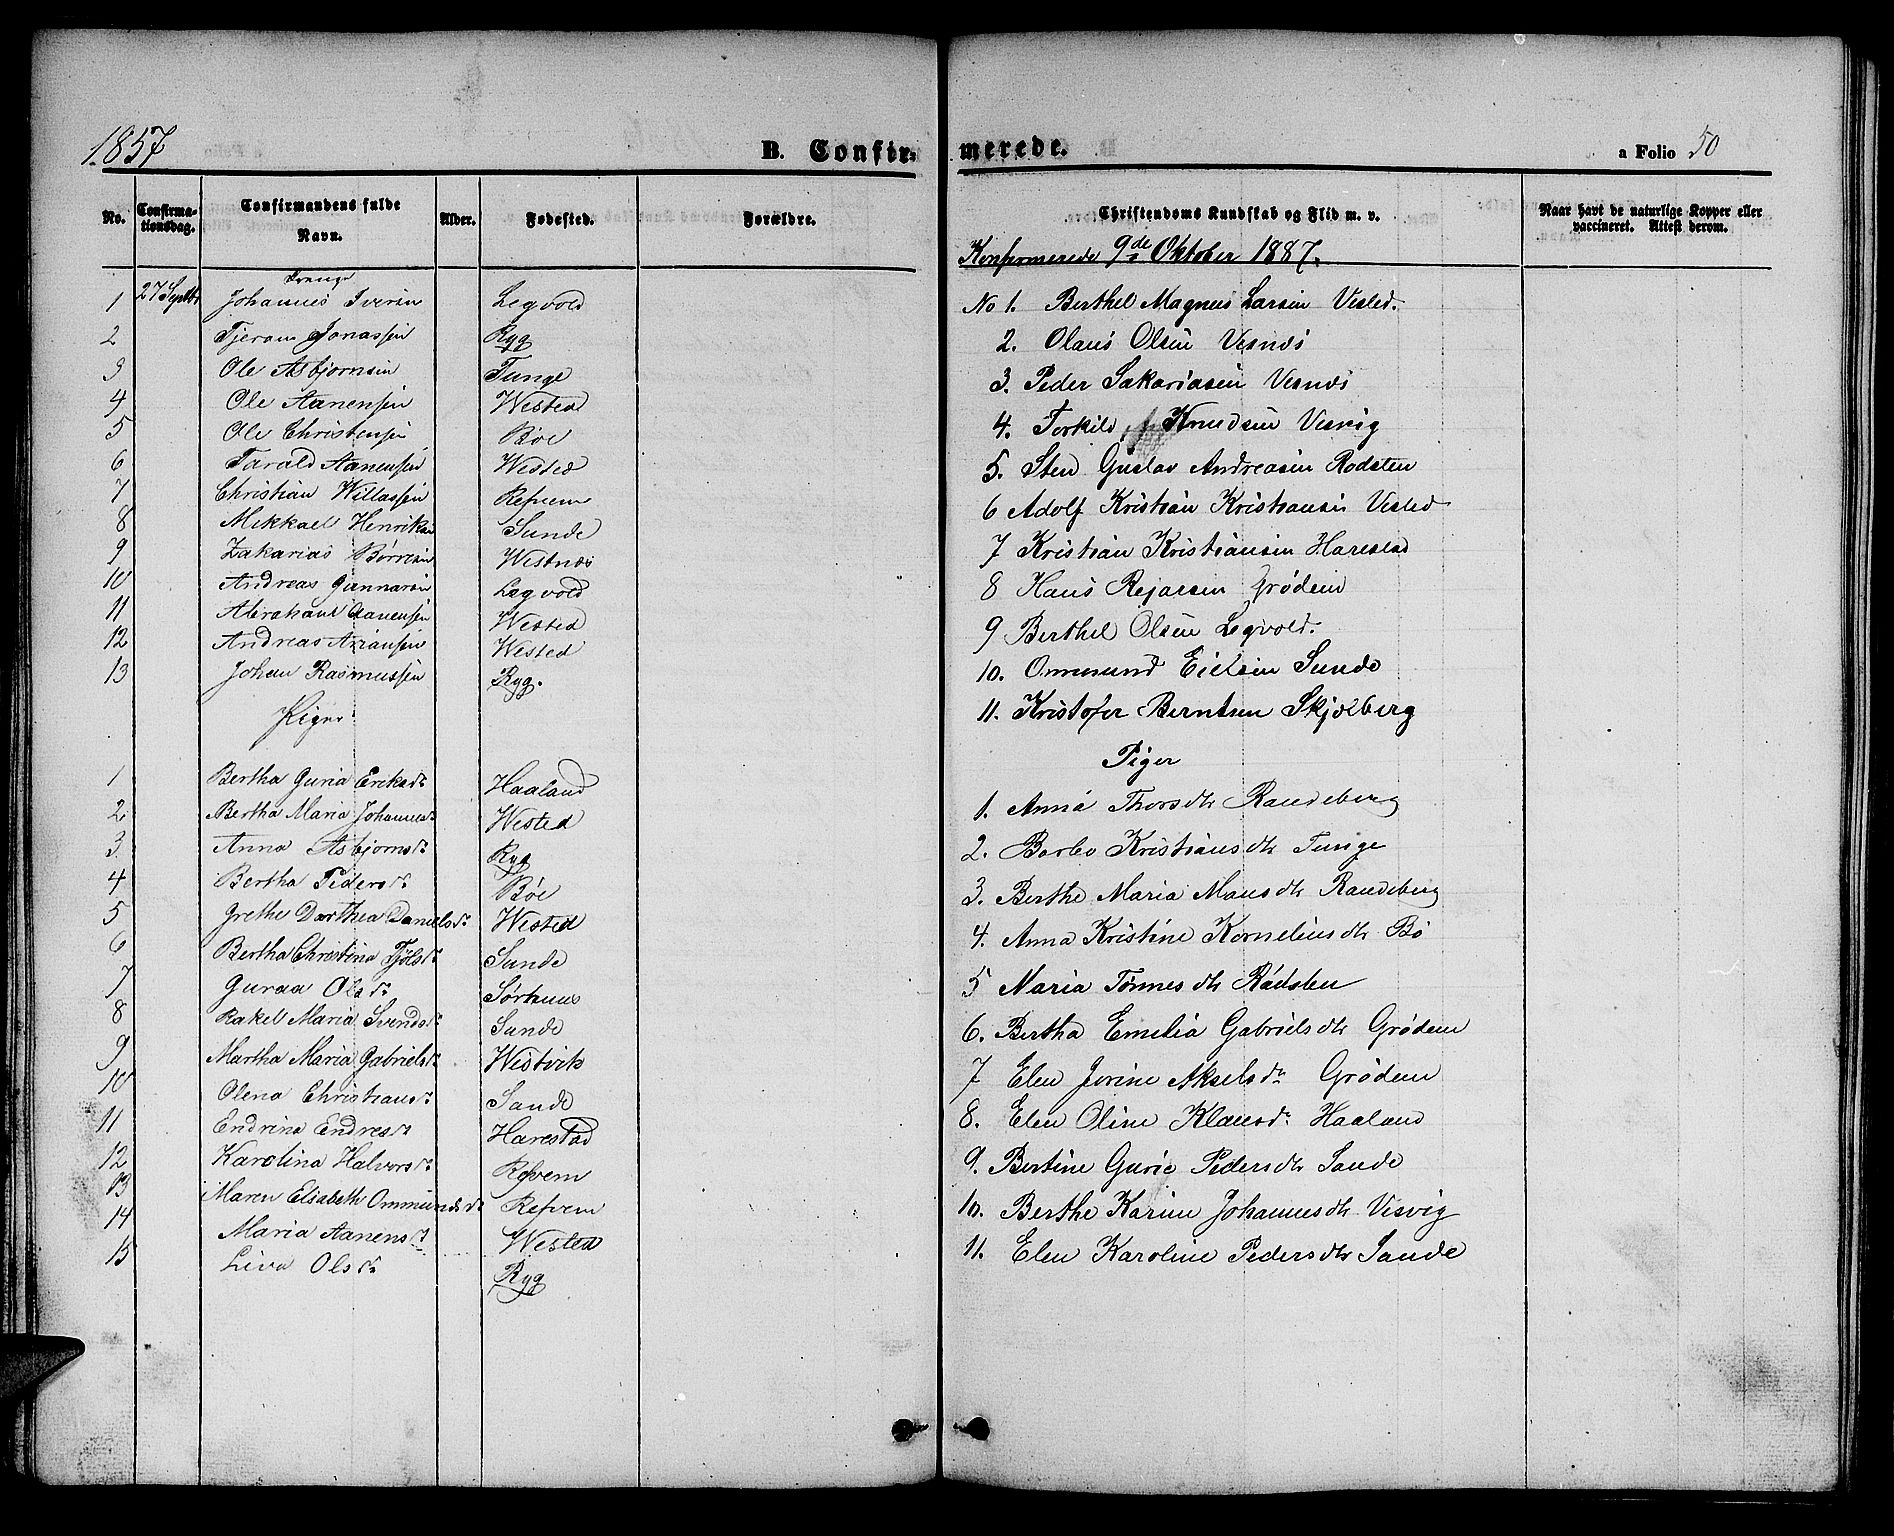 1857
B. Confir-
No.
Confirma-
tionsdag.
Confirmandens fulde
Navn.
Alder.
Fødested.
Forældre.
Drenge
1 27 Septbr Johannes Iversen Legvold
2 Tjeran Jonassen Ryg
3 Ole Asbjørnsen Tunge
4 Ole Aanensen Wested
5 Ole Christensen Bøe
6 Tarald Aanensen Wested
7 Christian Willassen Refvem
8 Mikkael Henriksen Sunde
9 Zakarias Børresen Westnæs
10 Andreas Gunnarsen Legvold
11 Abraham Aanensen Wested
12 Andreas Ariansen Wested
13 Johan Rasmussen Ryg.
Piger
1 Bertha Guria Eriksdr Haaland
2 Bertha Maria Johannesdr Wested
3 Anna Asbjørnsdr Ryg
4 Bertha Pedersdr Bøe
5 Grethe Dorthea Danielsdr Wested
6 Bertha Christina Tjølsdr Sunde
7 Guraa Olsdr Sørhuus
8 Rakel Maria Svendsdr Sunde
9 Martha Maria Gabrielsdr Westvik
10 Olena Christiansdr Sande
11 Endrina Endresdr Harestad
12 Karolina Halvorsdr Refvem
13 Maren Elisabeth Ommundsdr Refvem
14 Maria Aanensdr Wested
15 Liva Olsdr Ryg
merede.
a Folio 50
Christendoms Kundskab og Flid m. v.
Naar havt de naturlige Kopper eller
vaccineret. Attest derom.
Konfirmerede 9de Oktober 1887.
No 1. Berthel Magnus Larsen Visted.
2. Olaus Olsen Visnæs
3. Peder Sakariasen Visnæs
4. Torkild Knudsen Visvig
5. Sten Gustav Andreasen Rodsten
6 Adolf Kristian Kristiansen Visted
7 Kristian Kristiansen Harestad
8 Hans Rejarsen Grødem
9 Berthel Olsen Legvold.
10. Ommund Eielsen Sunde
11. Kristofer Berntsen Skjælberg
Piger
1. Anna Thorsdtr Randeberg
2. Barbo Kristiansdtr Tunge
3. Berthe Maria Mausdtr Randeberg
4. Anna Kristine Korneliusdtr Bø
5 Maria Tønnesdtr Rødsten
6. Bertha Emelia Gabrielsdtr Grødem
7 Elen Jorine Akselsdr Grødem
8. Elen Oline Klausdr Haaland
9. Bertine Gurie Pedersdtr Sande
10. Berthe Karine Johannesdtr Visvig
11. Elen Karoline Pedersdtr Sande